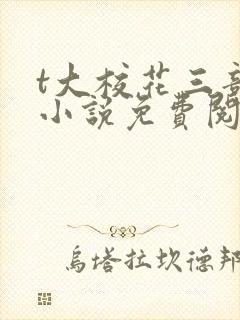 t大校花三部
小说免費閱
烏塔拉坎德邦